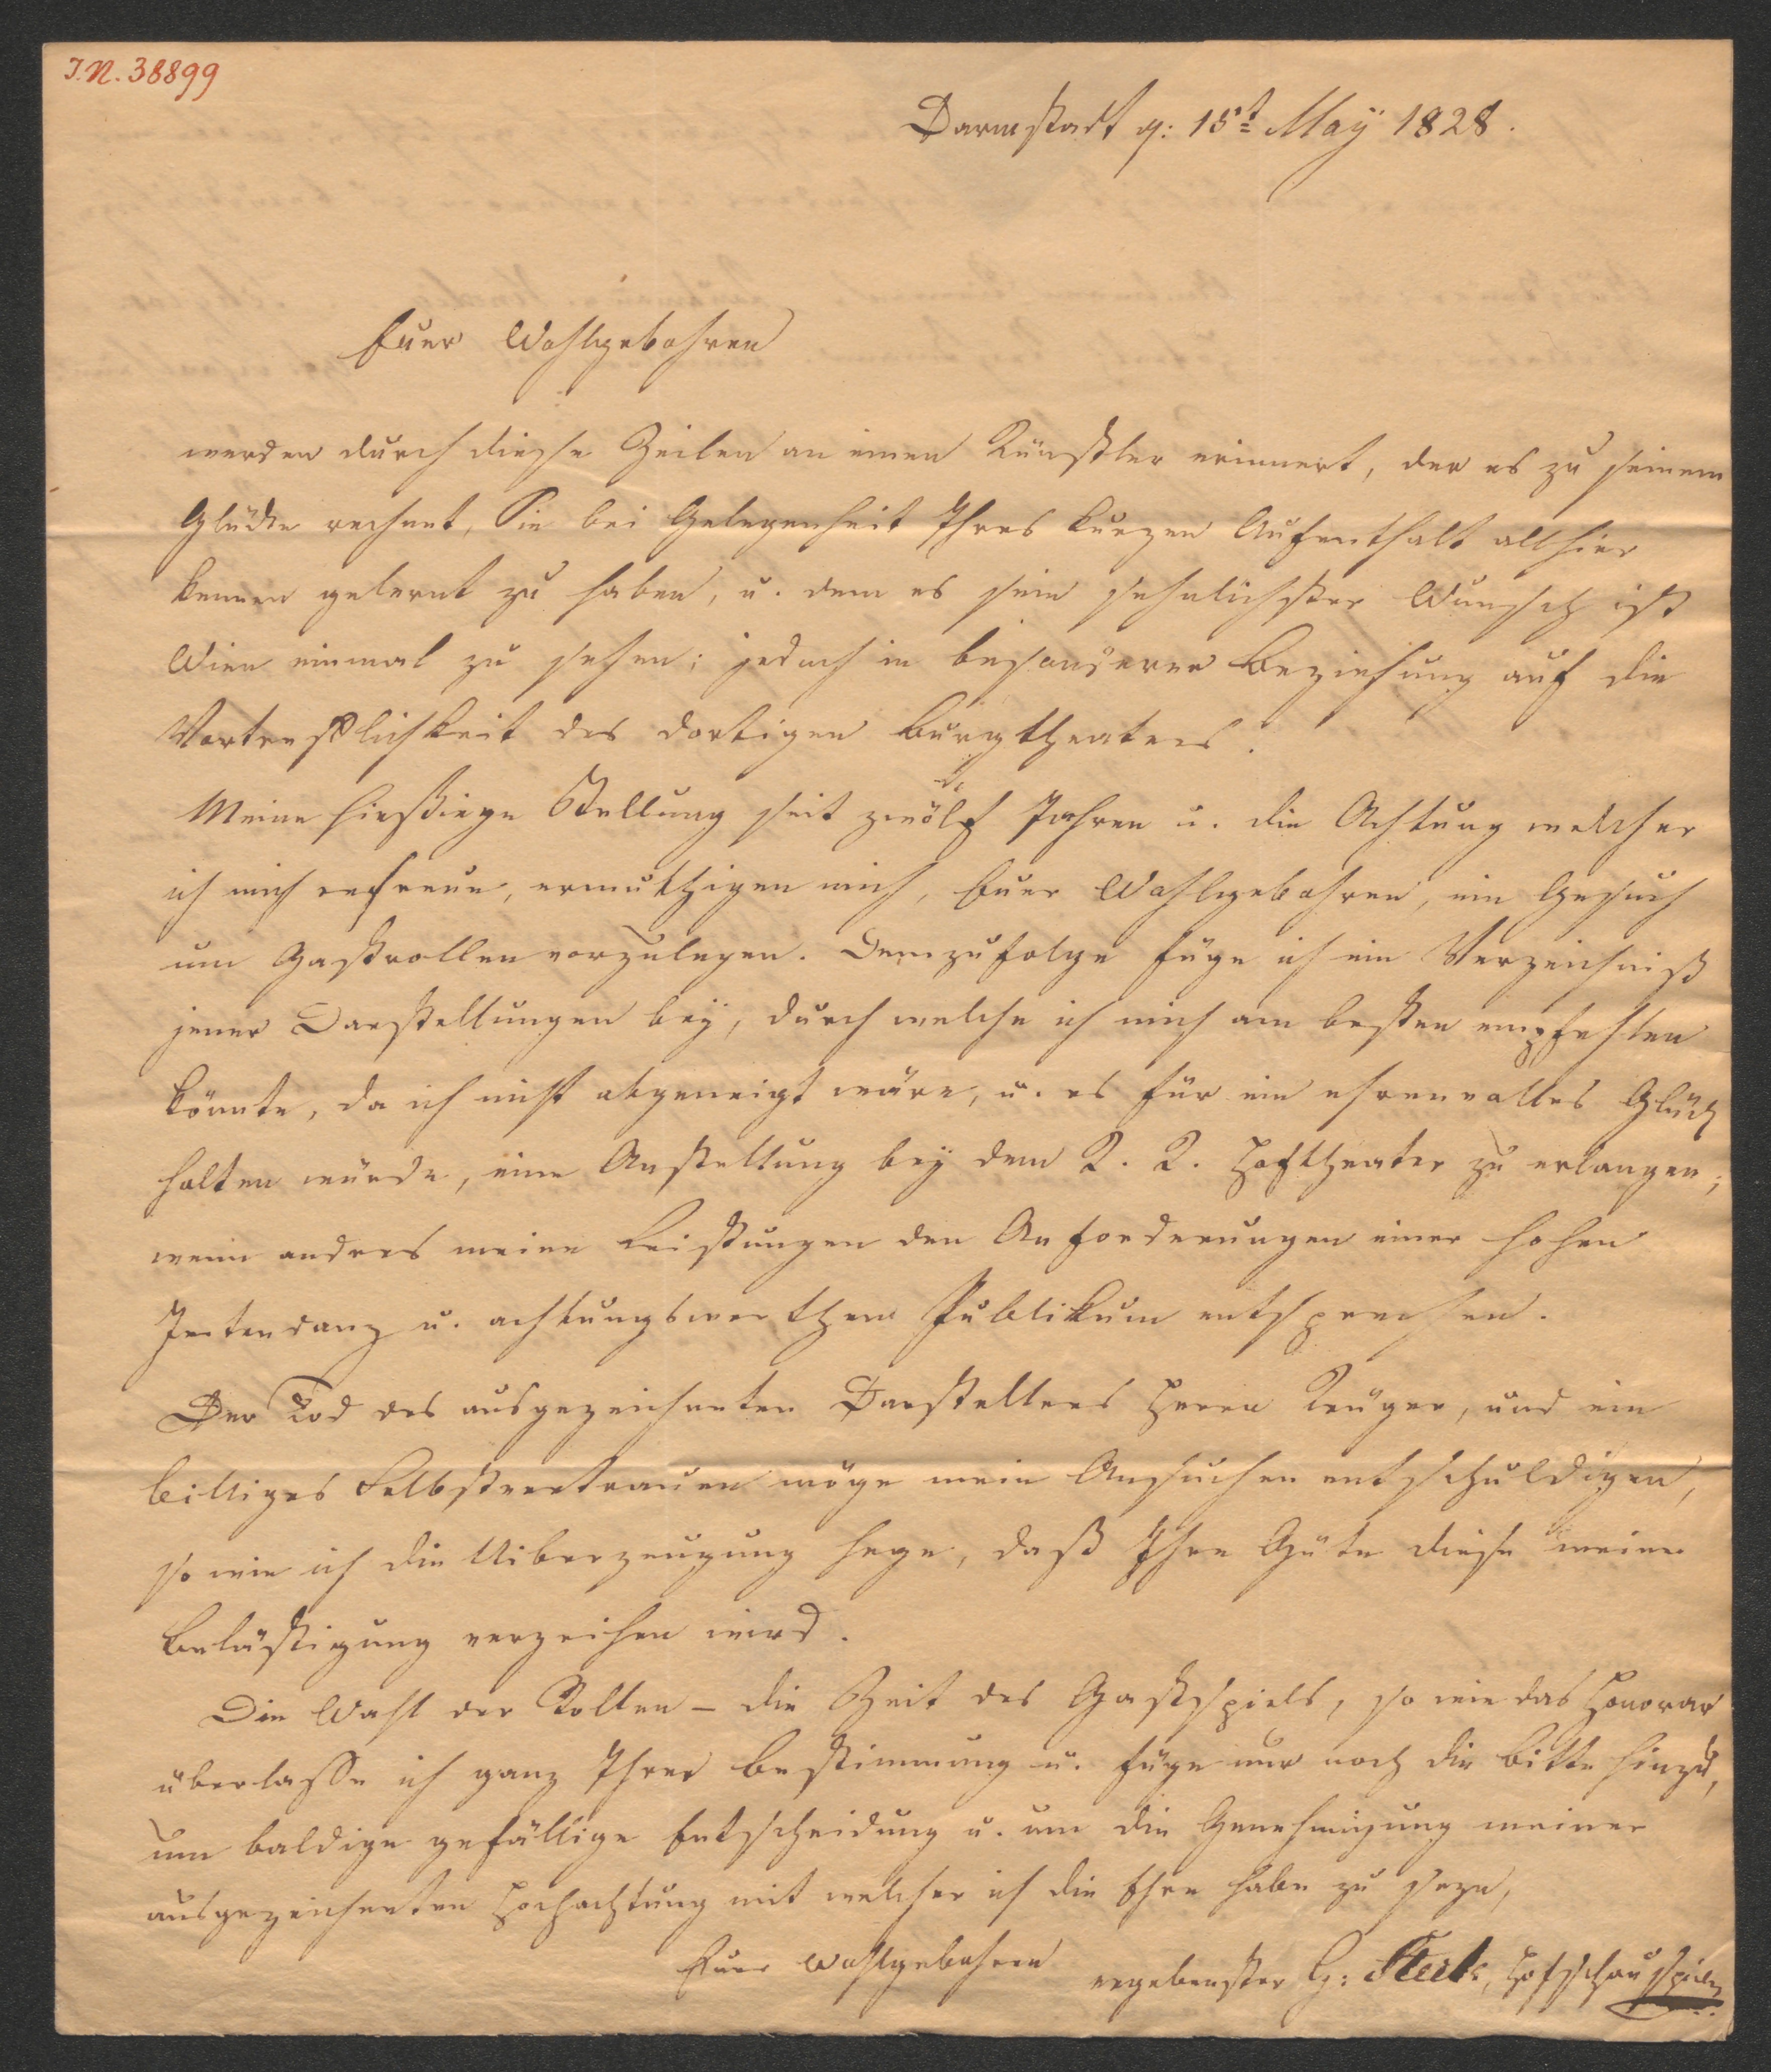 I.N. 38899
Darmstadt d: 15t May 1828.
Euer Wohlgebohren
werden durch diese Zeilen an einen Künstler erinnert, der es zu seinem
Glücke rechnet, Sie bei Gelegenheit Ihres kurzen Aufenthalt allhier
kennen gelernt zu haben, u. dem es sein sehnlichster Wunsch ist
Wien einmal zu sehen; jedoch in besonderer Beziehung auf die
Vortrefflichkeit des dortigen Burgtheaters.
Meine hießiege Stellung seit zwölf Jahren u. die Achtung welcher
ich mich erfreue, ermuthigen mich, Euer Wohlgebohren, ein Gesuch
um Gastrollen vorzulegen. Demzufolge füge ich ein Verzeichniß
jener Darstellungen bey, durch welche ich mich am besten empfehlen
könnte, da ich nicht abgeneigt wäre, u. es für ein ehrenvolles Glück
halten würde, eine Anstellung bey dem K. K. Hoftheater zu erlangen;
wenn anders meine Leistungen den Anforderungen einer hohen
Intendanz u. achtungswerthem Publikum entsprechen.
Der Tod des ausgezeichneten Darstellers Herrn Krüger, und ein
billiges Selbstvertrauen möge mein Ansuchen entschuldigen,
so wie ich die Uiberzeugung hege, daß Ihre Güte diese meine
Belästigung verzeihen wird.
Die Wahl der Rollen – die Zeit des Gastspiels, so wie das Honorar
überlasse ich ganz Ihrer Bestimmung u. füge nur noch die Bitte hinzu,
um baldige gefällige Entscheidung u. um die Genehmigung meiner
ausgezeichneten Hochachtung mit welcher ich die Ehre habe zu seyn,
Euer Wohlgebohren
ergebenster G: Steck, Hofschauspieler